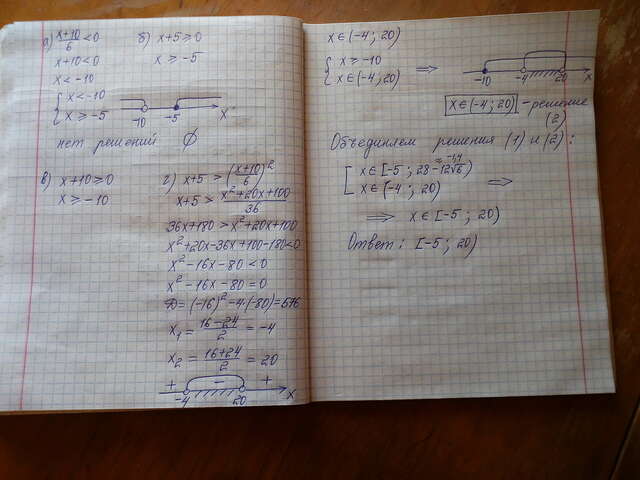 а) x+10/6 < 0
x+10<0
x<-10
{ x<-10
x ≥ -5
-10 -5 x
нет решений ∅
б) x+5 ≥ 0
x ≥ -5
в) x+10 ≥ 0
x ≥ -10
г) x+5 > (x+10/6)²
x+5 > x²+20x+100/36
36x+180 > x²+20x+100
x²+20x-36x+100-180<0
x²-16x-80 < 0
x²-16x-80 = 0
D = (-16)²-4·(-80)=576
x₁ = 16-24/2 = -4
x₂ = 16+24/2 = 20
+ - +
-4 20 x
x ∈ (-4; 20)
{ x ≥ -10
x ∈ (-4; 20)
⇒
-10 -4 20 x
x ∈ (-4; 20) - решение (2)
Объединяем решения (1) и (2):
[ x ∈ [-5; 28-12√6)
x ∈ (-4; 20)
⇒
⇒ x ∈ [-5; 20)
Ответ: [-5; 20)